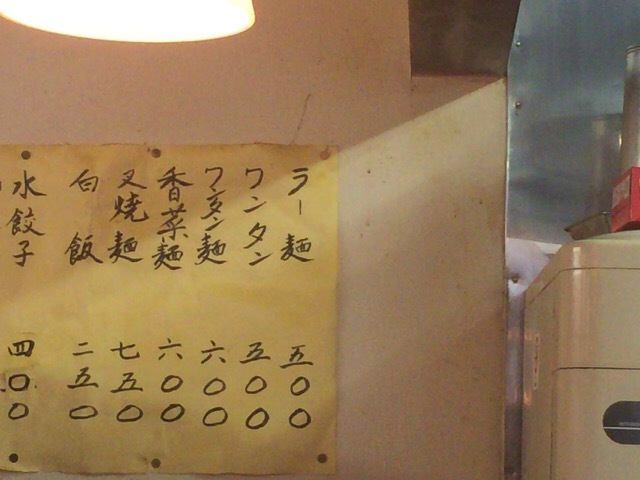 ラー麺 五〇〇
ワンタン 五〇〇
ワンタン麺 六〇〇
香菜麺 六〇〇
叉焼麺 七五〇
白飯 二五〇
水餃子 四〇〇